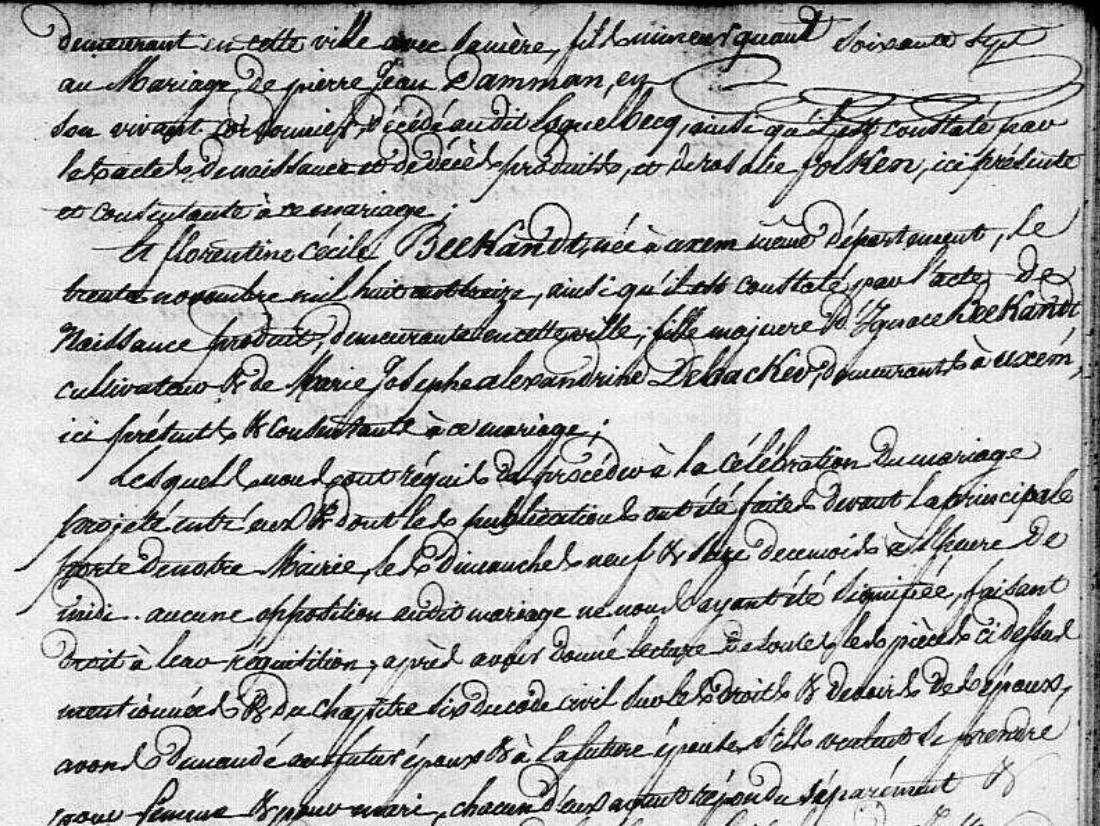 demeurant en cette ville avec sa mère, fils mineur quant soixante sept
au Mariage, de pierre Jean Damman, en
son vivant Cordonnier, décédé au dit Esquelbecq, ainsi qu'il est constaté par
les actes de naissance et de décès produits, et de rosalie folken, ici présente
et consentante à ce mariage;
Et florentine Cécile BeeKandt, née à uxem même département, le
trente novembre mil huit cent treize, ainsi qu'il est constaté par l'acte de
Naissance produit, demeurante en cette ville, fille majeure d'Ignace BeeKandt,
cultivateur & de Marie Josephe alexandrine DebacKer, demeurants à uxem,
ici présents & consentants à ce mariage;
Lesquels nous ont réquis de procéder à la célébration du mariage
projeté entr'eux & dont les publications ont été faites devant la principale
porte de notre Mairie, les dimanches neuf & seize de ce mois à l'heure de
midi. aucune opposition au dit mariage ne nous ayant été signifiée, faisant
droit à leur réquisition, après avoir donné lecture de toutes les pièces ci dessus
mentionnées & du chapitre six du code civil sur les droits & devoirs des époux,
avons demandé au futur époux & à la future épouse s'ils veulent se prendre
pour femme & pour mari, chacun d'eux ayant répondu séparément &